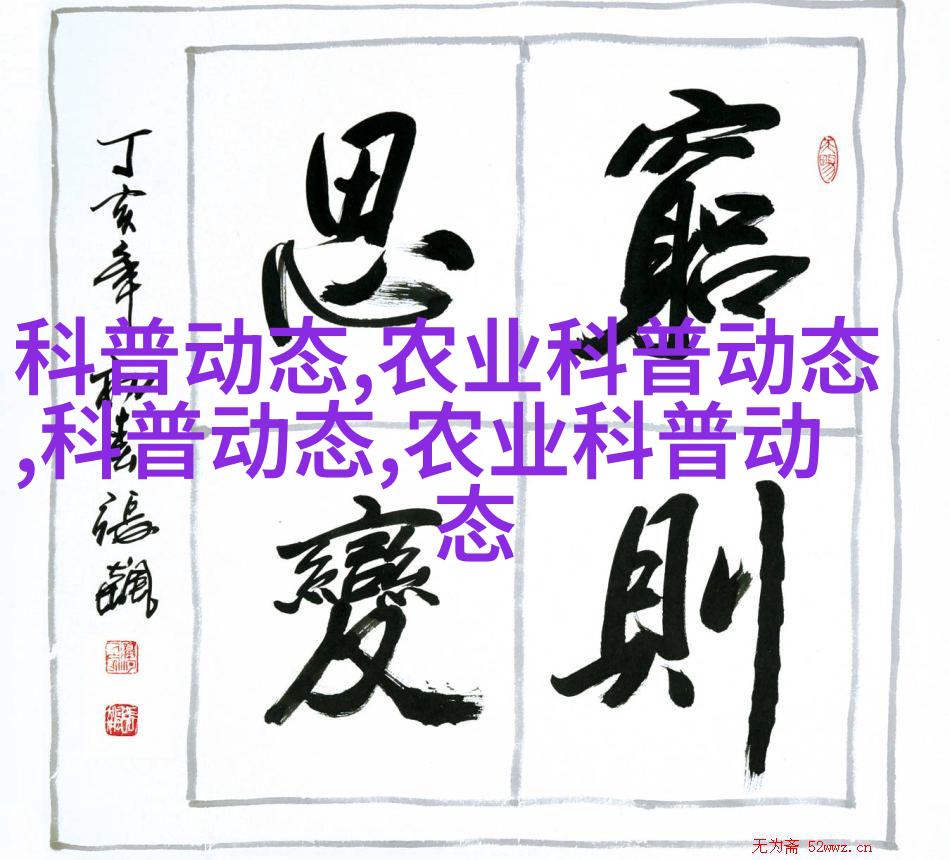 窮則
思變
丁亥年初春張飆
科普动态,农业科普动态
,科普动态,农业科普动
态
无为斋 52wwz.cn